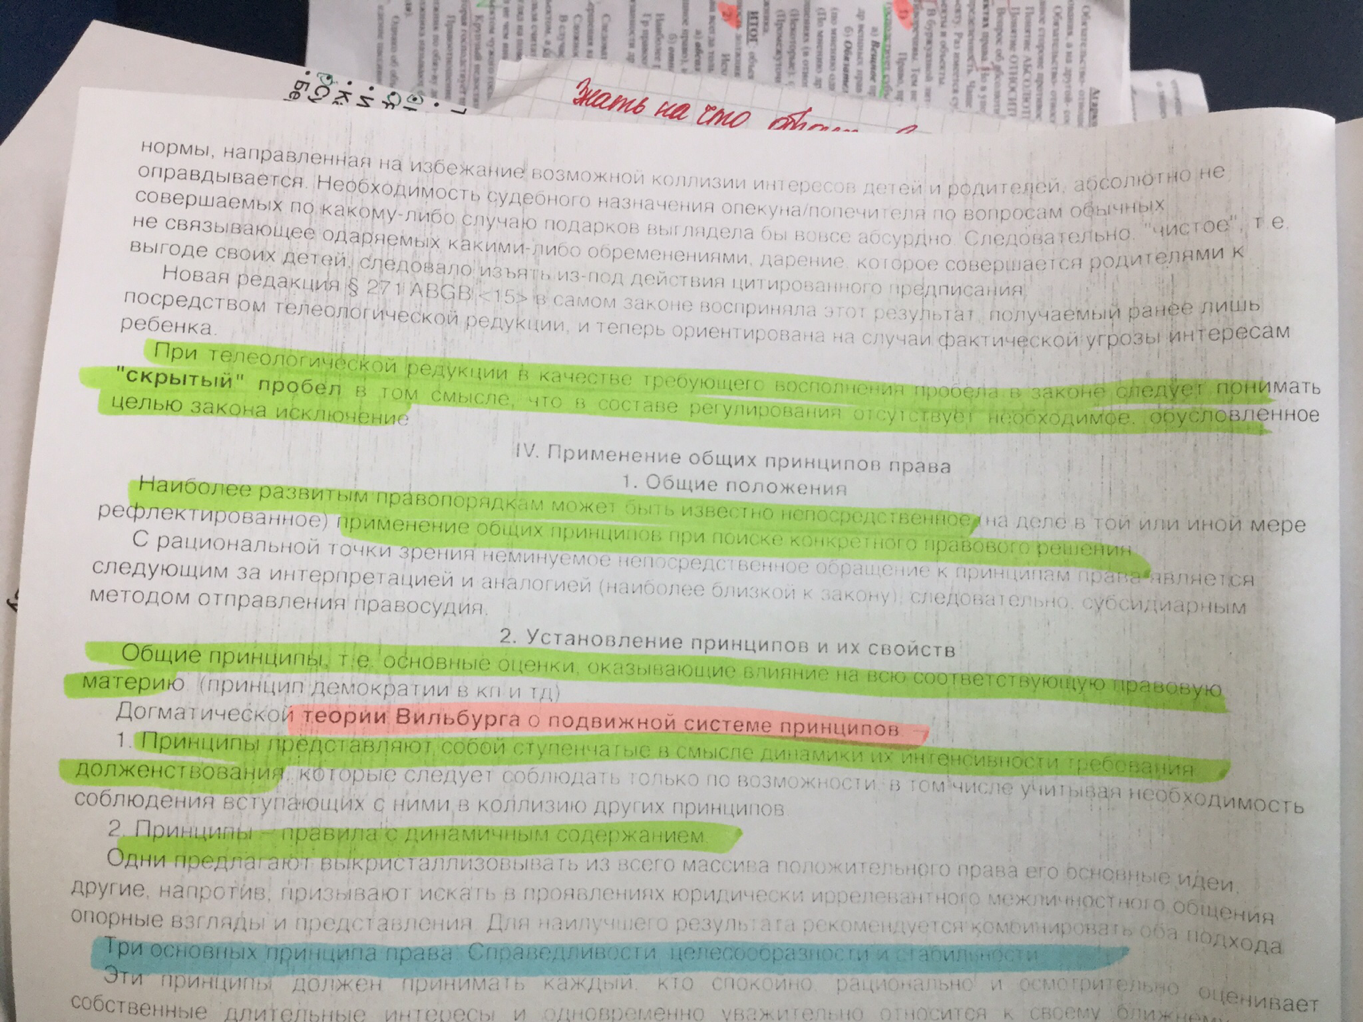 Знать на что
нормы, направленная на избежание возможной коллизии интересов детей и родителей, абсолютно не
оправдывается. Необходимость судебного назначения опекуна/попечителя по вопросам обычных
совершаемых по какому-либо случаю подарков выглядела бы вовсе абсурдно. Следовательно, "чистое", т.е.
не связывающее одаряемых какими-либо обременениями, дарение, которое совершается родителями к
выгоде своих детей, следовало изъять из-под действия цитированного предписания.
Новая редакция § 271 ABGB <15> в самом законе восприняла этот результат, получаемый ранее лишь
посредством телеологической редукции, и теперь ориентирована на случаи фактической угрозы интересам
ребенка.
При телеологической редукции в качестве требующего восполнения пробела в законе следует понимать
"скрытый" пробел в том смысле, что в составе регулирования отсутствует необходимое, орусловленное
целью закона исключение
IV. Применение общих принципов права
1. Общие положения
Наиболее развитым правопорядкам может быть известно непосредственное (на деле в той или иной мере
рефлектированное) применение общих принципов при поиске конкретного правового решения
С рациональной точки зрения неминуемое непосредственное обращение к принципам права является
следующим за интерпретацией и аналогией (наиболее близкой к закону), следовательно, субсидиарным
методом отправления правосудия.
2. Установление принципов и их свойств
Общие принципы, т.е. основные оценки, оказывающие влияние на всю соответствующую правовую
материю. (принцип демократии в кп и тд)
Догматической теории Вильбурга о подвижной системе принципов –
1. Принципы представляют собой ступенчатые в смысле динамики их интенсивности требования
долженствования, которые следует соблюдать только по возможности, в том числе учитывая необходимость
соблюдения вступающих с ними в коллизию других принципов
2. Принципы – правила с динамичным содержанием.
Одни предлагают выкристаллизовывать из всего массива положительного права его основные идеи,
другие, напротив, призывают искать в проявлениях юридически иррелевантного межличностного общения
опорные взгляды и представления. Для наилучшего результата рекомендуется комбинировать оба подхода
Три основных принципа права: Справедливости, целесообразности и стабильности
Эти принципы должен принимать каждый, кто спокойно, рационально и осмотрительно оценивает
собственные длительные интересы и одновременно уважительно относится к своему